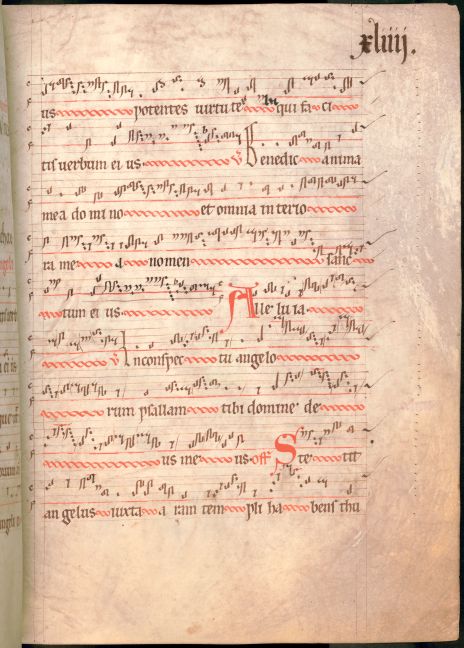 xliiij.
us potentes virtute qui faci
tis verbum eius Benedic anima
mea domino et omnia interio
ra mea nomen sanc
tum eius Alleluia
Inconspec tu angelo
rum psallam tibi domine de
us meus off Ste tit
angelus iuxta aram templi habens thu